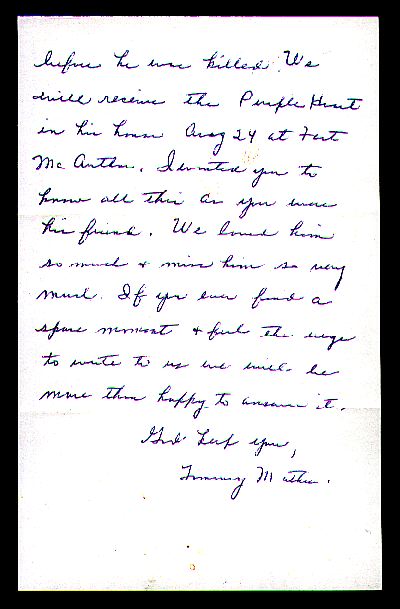 before he was killed. We
will receive the Purple Heart
in his honor Aug 24 at Fort
Mc Arthur. I wanted you to
know all this as you were
his friend. We loved him
so much & miss him so very
much. If you ever find a
spare moment & feel the urge
to write to us we will be
more than happy to answer it.
God keep you,
Tommy's Mother.